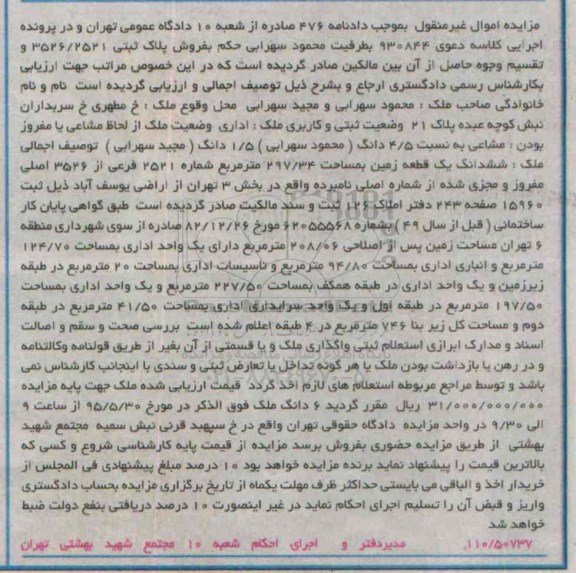 مزایده اموال غیرمنقول بموجب دادنامه ۴۷۶ صادره از شعبه ۱۰ دادگاه عمومی تهران و در پرونده
اجرایی کلاسه دعوی ۹۳۰۸۴۴ بطرفیت محمود سهرابی حکم بفروش پلاک ثبتی ۳۵۲۶/۲۵۲۱ و
تقسیم وجوه حاصل از آن بین مالکین صادر گردیده است که در این خصوص مراتب جهت ارزیابی
بکارشناس رسمی دادگستری ارجاع و بشرح ذیل توصیف اجمالی و ارزیابی گردیده است نام و نام
خانوادگی صاحب ملک : محمود سهرابی و مجید سهرابی محل وقوع ملک : خ مطهری خ سربداران
نبش کوچه عبده پلاک ۲۱ وضعیت ثبتی و کاربری ملک : اداری وضعیت ملک از لحاظ مشاعی یا مفروز
بودن : مشاعی به نسبت ۴/۵ دانگ ( محمود سهرابی ) ۱/۵ دانگ ( مجید سهرابی ) توصیف اجمالی
ملک : ششدانگ یک قطعه زمین بمساحت ۲۹۷/۳۴ مترمربع شماره ۲۵۲۱ فرعی از ۳۵۲۶ اصلی
مفروز و مجزی شده از شماره اصلی نامبرده واقع در بخش ۳ تهران از اراضی یوسف آباد ذیل ثبت
۱۵۹۶۰ صفحه ۲۴۳ دفتر املاک ۱۲۶ ثبت و سند مالکیت صادر گردیده است طبق گواهی پایان کار
ساختمانی ( قبل از سال ۴۹ ) بشماره ۶۲۰۵۵۵۶۸ مورخ ۸۲/۱۲/۲۶ صادره از سوی شهرداری منطقه
۶ تهران مساحت زمین پس از اصلاحی ۲۰۸/۰۶ مترمربع دارای یک واحد اداری بمساحت ۱۲۴/۷۰
مترمربع و انباری اداری بمساحت ۹۴/۸۰ مترمربع و تاسیسات اداری بمساحت ۲۰ مترمربع در طبقه
زیرزمین و یک واحد اداری در طبقه همکف بمساحت ۲۲۷/۵۰ مترمربع و یک واحد اداری بمساحت
۱۹۷/۵۰ مترمربع در طبقه اول و یک واحد سرایداری اداری بمساحت ۴۱/۵۰ مترمربع در طبقه
دوم و مساحت کل زیر بنا ۷۴۶ مترمربع در ۴ طبقه اعلام شده است بررسی صحت و سقم و اصالت
اسناد و مدارک ابرازی استعلام ثبتی واگذاری ملک و یا قسمتی از آن بغیر از طریق قولنامه وکالتنامه
و در رهن یا بازداشت بودن ملک یا هر گونه تداخل یا تعارض ثبتی و سندی با اینجانب کارشناس نمی
باشد و توسط مراجع مربوطه استعلام های لازم اخذ گردد قیمت ارزیابی شده ملک جهت پایه مزایده
۳۱/۰۰۰/۰۰۰/۰۰۰ ریال مقرر گردید ۶ دانگ ملک فوق الذکر در مورخ ۹۵/۵/۳۰ از ساعت ۹
الی ۹/۳۰ در واحد مزایده دادگاه حقوقی تهران واقع در خ سپهبد قرنی نبش سمیه مجتمع شهید
بهشتی از طریق مزایده حضوری بفروش برسد مزایده از قیمت پایه کارشناسی شروع و کسی که
بالاترین قیمت را پیشنهاد نماید برنده مزایده خواهد بود ۱۰ درصد مبلغ پیشنهادی فی المجلس از
خریدار اخذ و الباقی می بایستی حداکثر ظرف مهلت یکماه از تاریخ برگزاری مزایده بحساب دادگستری
واریز و قبض آن را تسلیم اجرای احکام نماید در غیر اینصورت ۱۰ درصد دریافتی بنفع دولت ضبط
خواهد شد
۱۱۰/۵۰۷۳۷ مدیردفتر و اجرای احکام شعبه ۱۰ مجتمع شهید بهشتی تهران